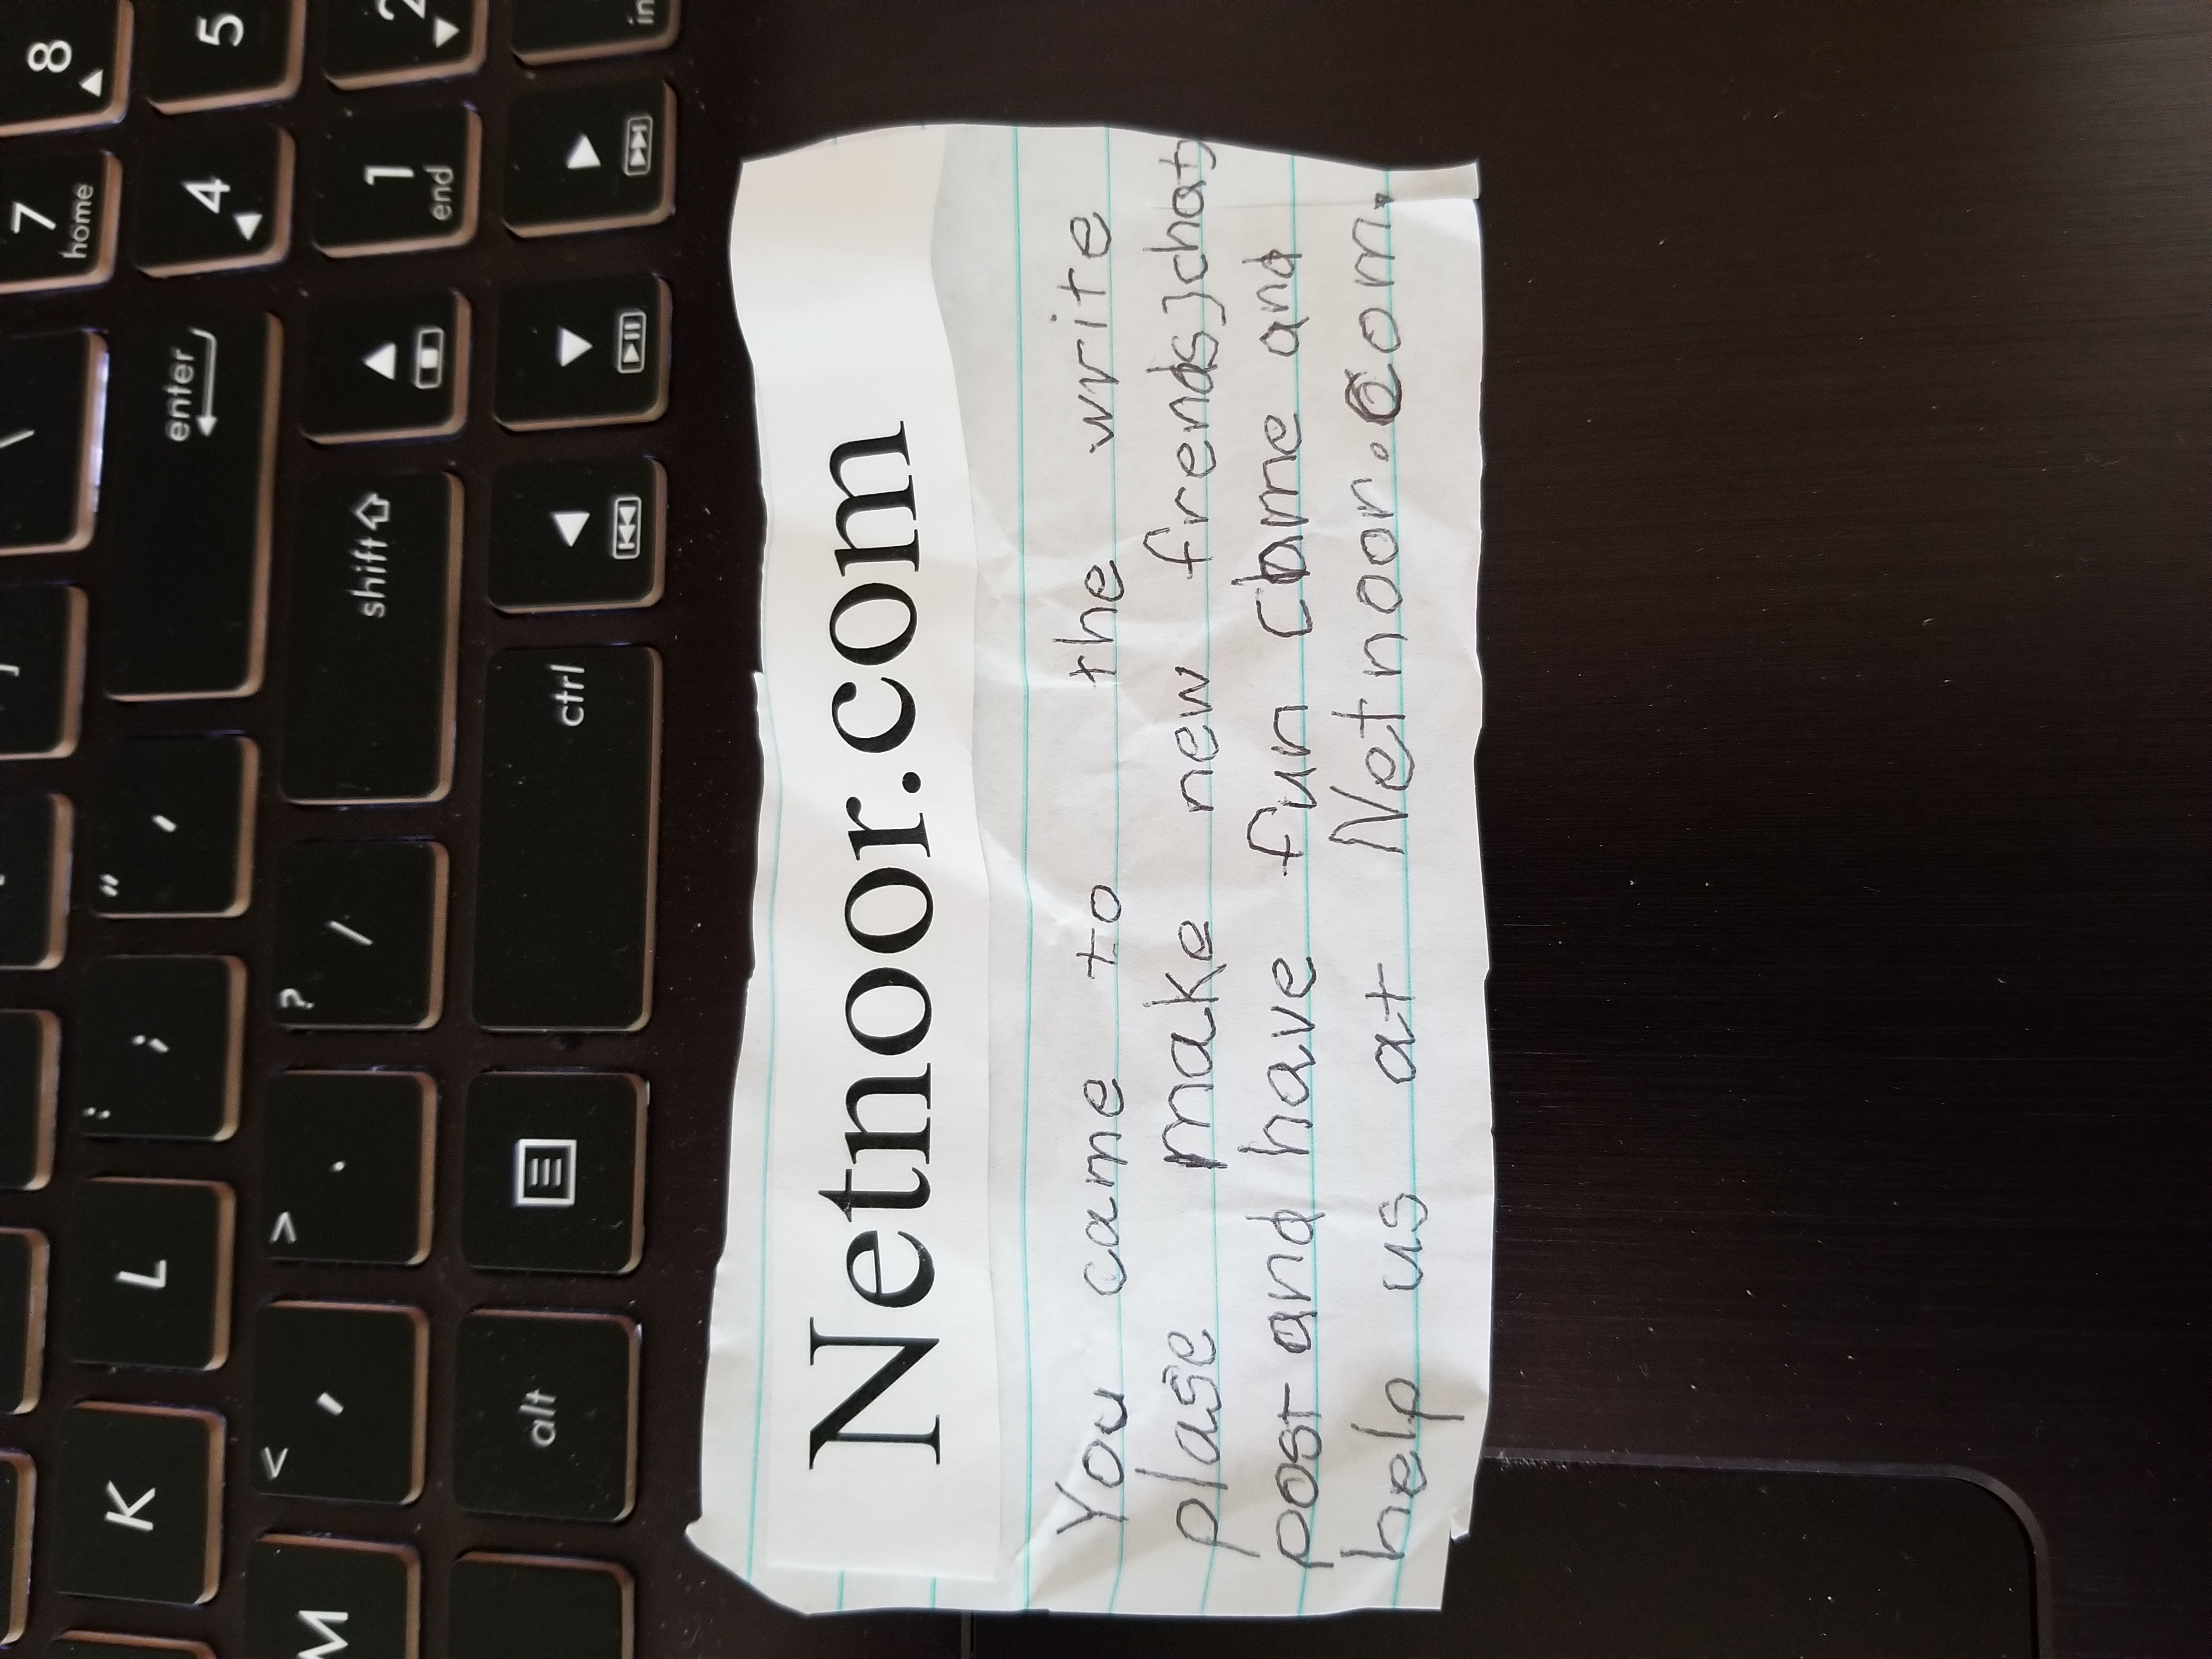 Netnoor.com
You came to the write
plase make new frends, chat,
post and have fun come and
help us at Netnoor.com.
8
5
2
in
7
home
4
1
end
enter
shift
ctrl
"
'
?
/
:
;
>
.
L
<
,
alt
K
M